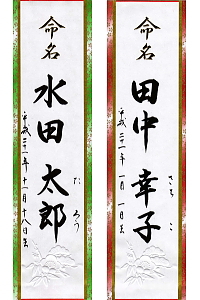 命名
田中 幸子
さち こ
平成二十一年 一月 一日生
命名
水田 太郎
た ろう
平成二十一年 十一月 十八日生